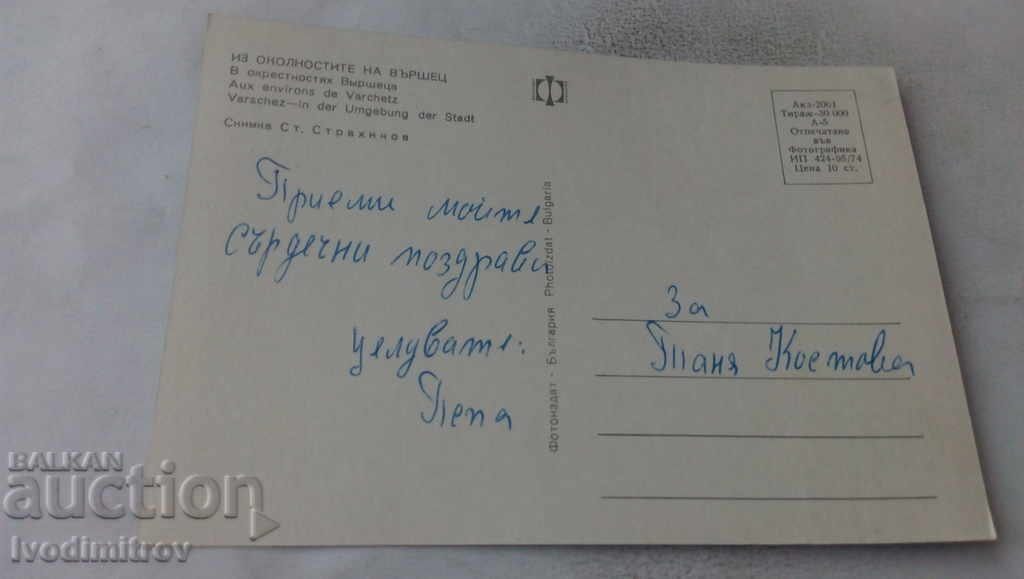 ИЗ ОКОЛНОСТИТЕ НА ВЪРШЕЦ
В окрестностях Выршеца
Aux environs de Varchetz
Varschez—in der Umgebung der Stadt
Снимка Ст. Страхинов
Приеми моите
сърдечни поздрави
целувате:
Пепа
Фотоиздат - България Photoizdat - Bulgaria
Акз-2001
Тираж-30 000
А-5
Отпечатано
във
Фотографика
ИП 424-05/74
Цена 10 ст.
За
Таня Костова
BALKAN
auction
Ivodimitrov